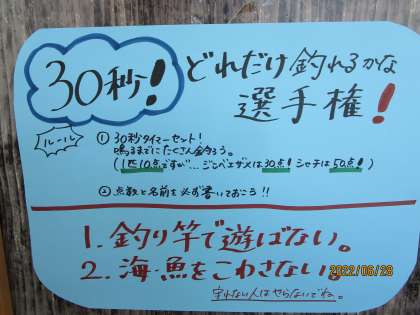 30秒! どれだけ釣れるかな
選手権!
ルール
① 30秒タイマーセット!
鳴るまでにたくさん釣ろう。
(1匹10点ですが…ジンベエザメは30点! シャチは50点!)
② 点数と名前を必ず書いておこう!!
1. 釣り竿で遊ばない。
2. 海・魚をこわさない。
守れない人はやらないでね。
2022/06/28